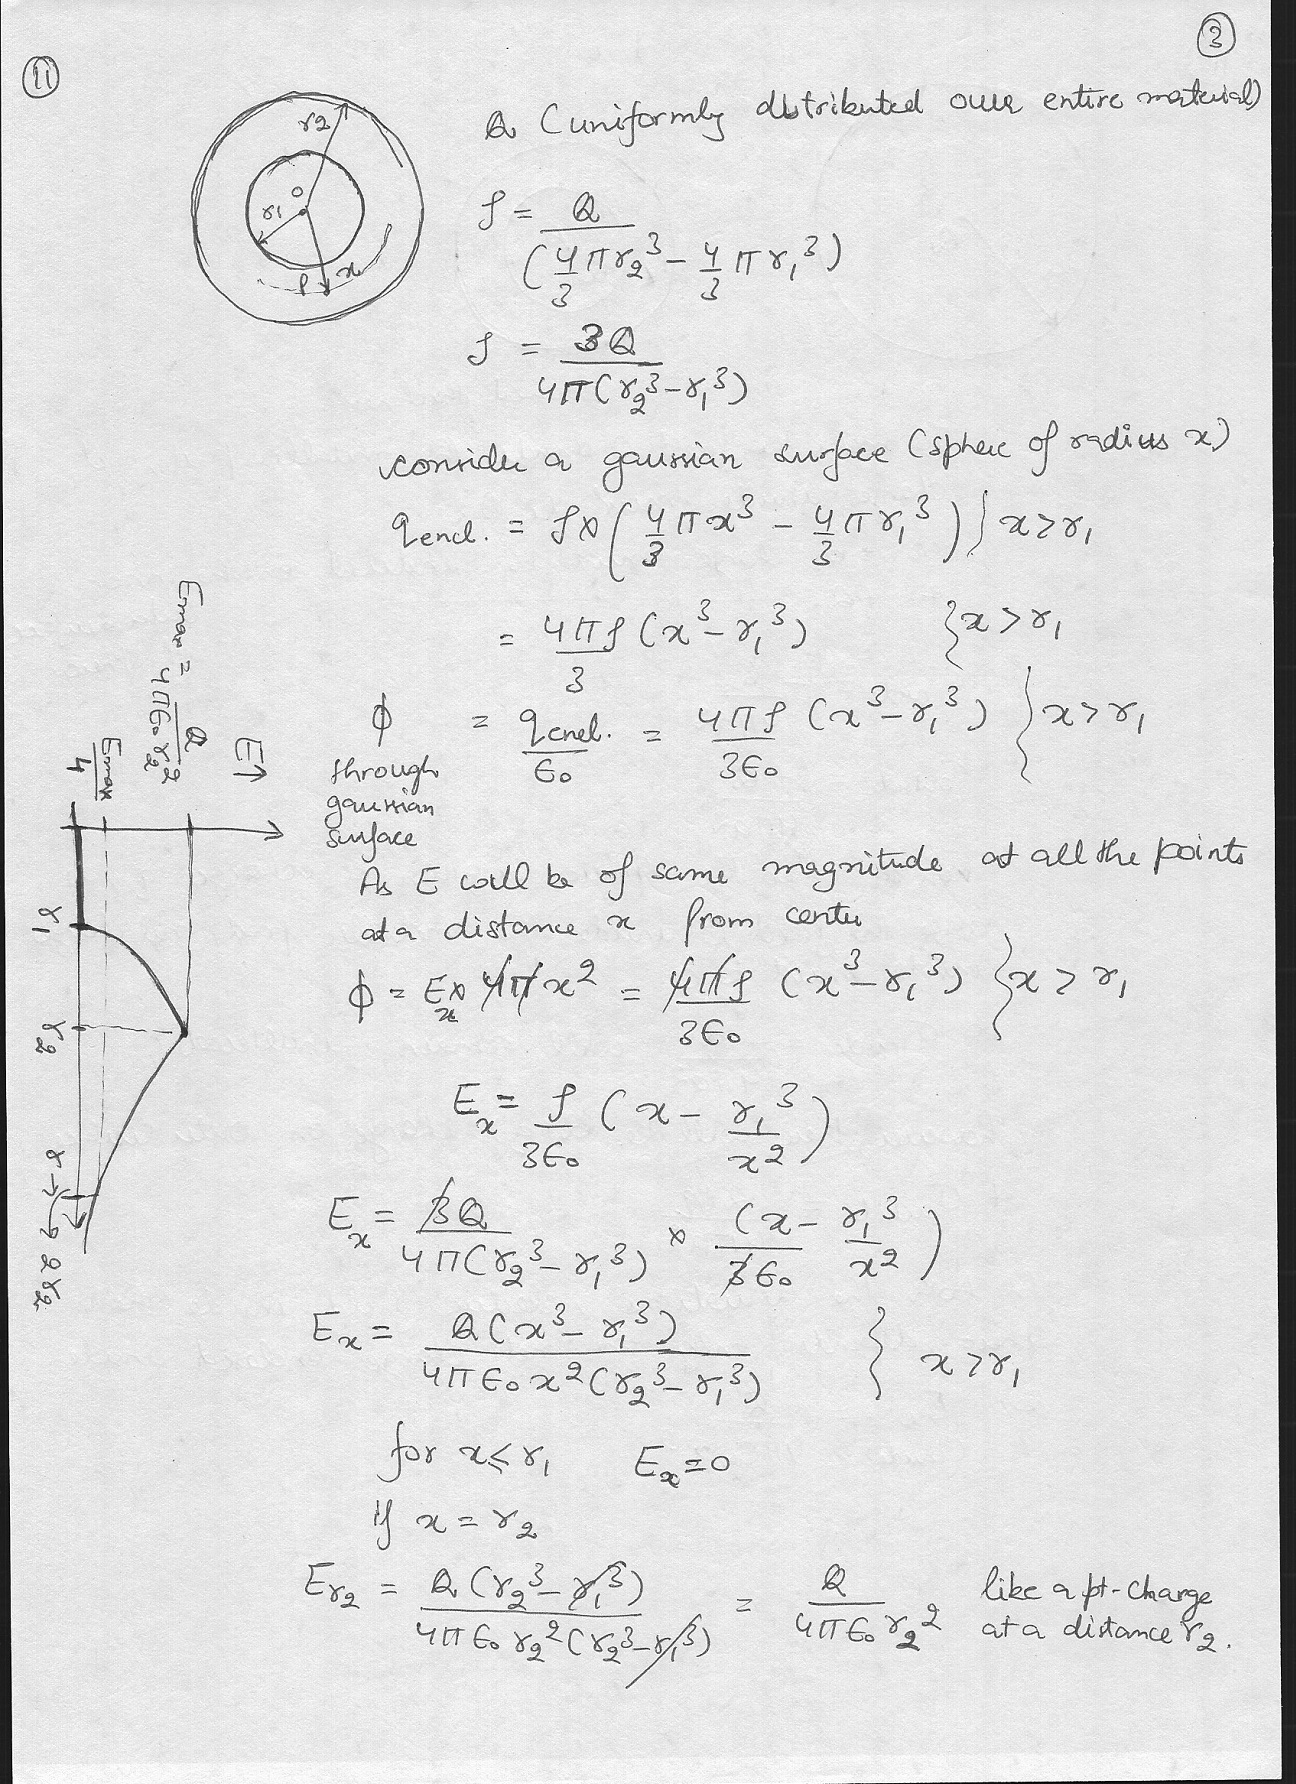 ③
⑪
Q (uniformly distributed over entire material)
r2
O
r1
P x
ρ = Q / (4/3 πr₂³ − 4/3 πr₁³)
ρ = 3Q / 4π(r₂³−r₁³)
consider a gaussian surface (sphere of radius x)
qencl. = ρ×(4/3 πx³ − 4/3 πr₁³) } x>r₁
= 4πρ/3 (x³−r₁³) {x>r₁
ϕ through gaussian surface = qencl./ϵ₀ = 4πρ/3ϵ₀ (x³−r₁³) } x>r₁
As E will be of same magnitude at all the points
at a distance x from center
ϕ = Ex× 4π x² = 4πρ/3ϵ₀ (x³−r₁³) } x>r₁
Ex = ρ/3ϵ₀ (x − r₁³/x²)
Ex = 3Q / 4π(r₂³−r₁³) × (x − r₁³/x²) / 3ϵ₀
Ex = Q(x³−r₁³) / 4πϵ₀x²(r₂³−r₁³) } x>r₁
for x≤r₁ Ex=0
If x = r₂
Er₂ = Q(r₂³−r₁³) / 4πϵ₀r₂²(r₂³−r₁³) = Q / 4πϵ₀r₂² like a pt-charge
at a distance r₂.
Emax = Q / 4πϵ₀r₂²
E↑
Emax/4
r₁
r₂
r→
2r₂